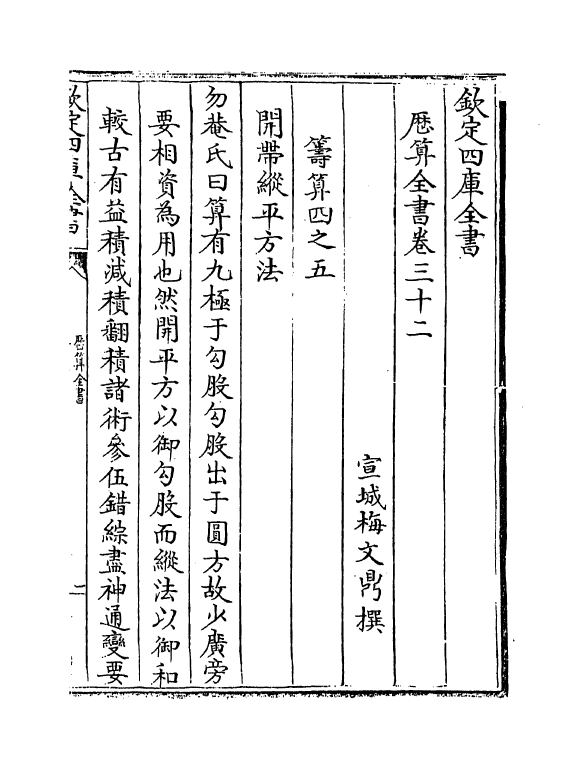 欽定四庫全書
厯算全書卷三十二
宣城梅文鼎撰
籌算四之五
開帶縱平方法
勿菴氏曰算有九極于勾股勾股出于圓方故少廣旁
要相資為用也然開平方以御勾股而縱法以御和
較古有益積減積翻積諸術參伍錯綜盡神通變要
欽定四庫全書
厯算全書
二